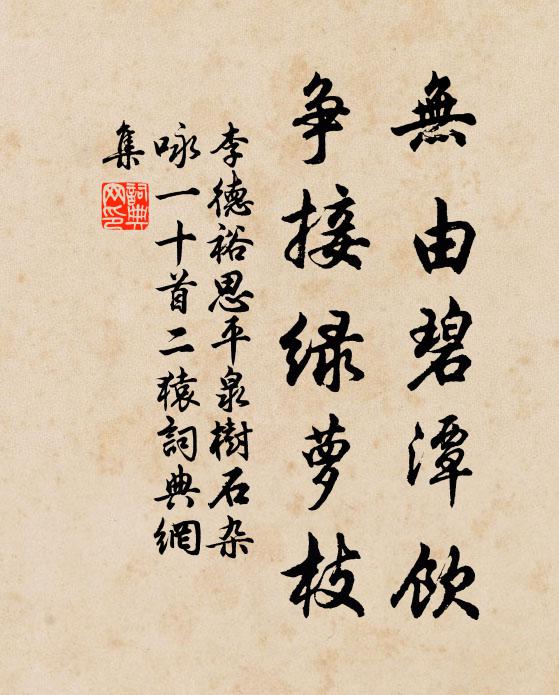 無由碧潭飲
争接緑萝枝
李德裕思平泉樹石杂
咏一十首二猿詞典網
集
詞典
网印